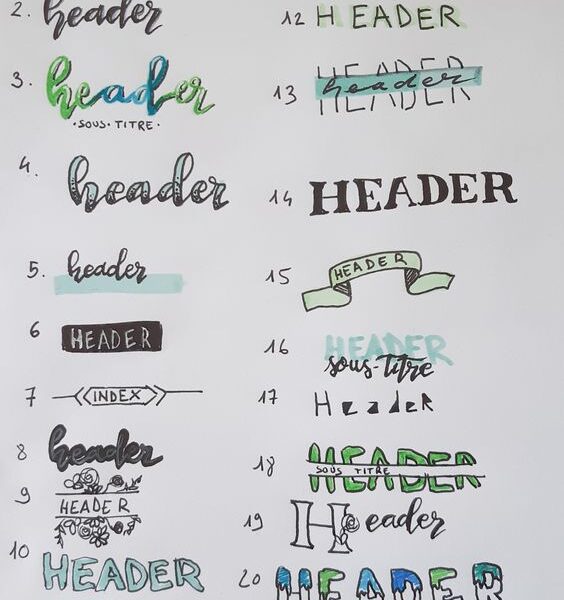 2. header
3. header
·SOUS·TITRE·
4. header
5. header
6 HEADER
7 INDEX
8 header
9 HEADER
10 HEADER
12 HEADER
13 HEADER
header
14 HEADER
15 HEADER
16 HEADER
sous-Titre
17 HeadeR
18 HEADER
SOUS TITRE
19 Header
20 HEADER